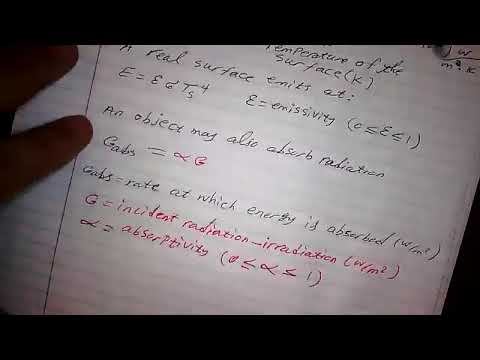 Temperature of the
surface (K)
W
m².K
A real surface emits at:
E = εσTs⁴ ε = emissivity (0 ≤ ε ≤ 1)
An object may also absorb radiation
Gabs = αG
Gabs = rate at which energy is absorbed (W/m²)
G = incident radiation - irradiation (W/m²)
α = absorptivity (0 ≤ α ≤ 1)